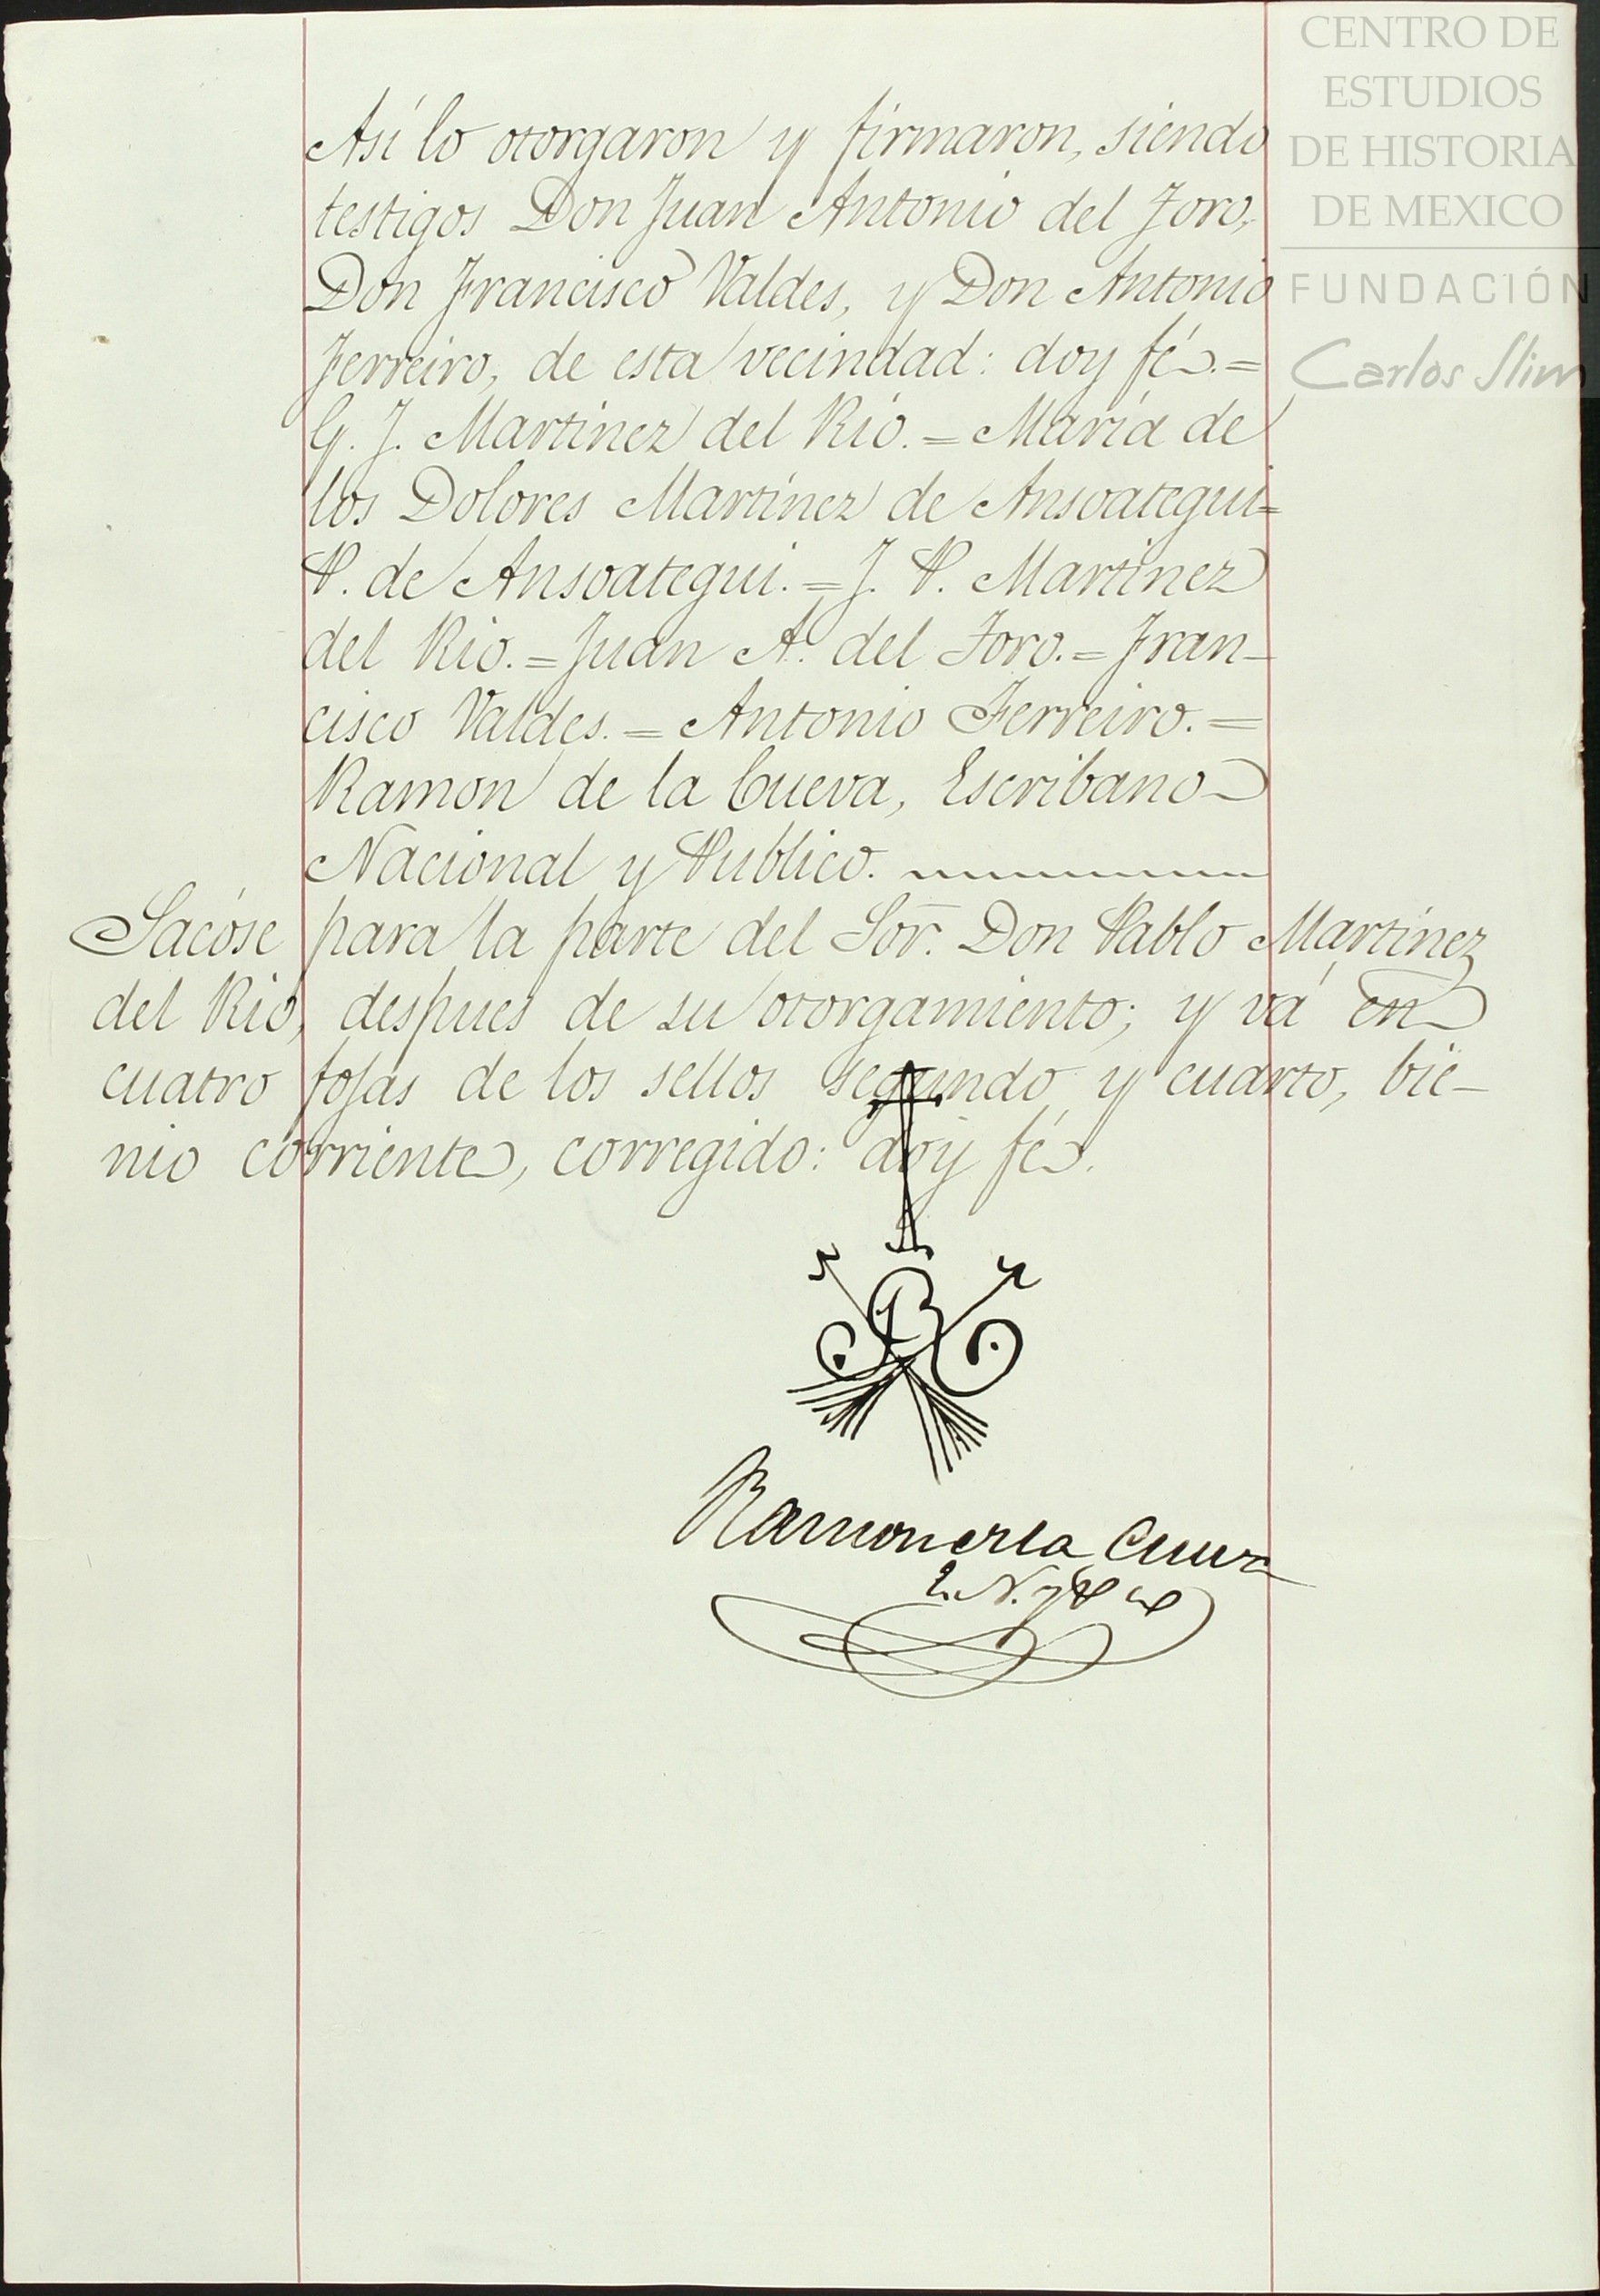 CENTRO DE
ESTUDIOS
DE HISTORIA
DE MEXICO
FUNDACIÓN
Carlos Slim
Así lo otorgaron y firmaron, siendo
testigos Don Juan Antonio del Toro,
Don Francisco Valdes, y Don Antonio
Ferreiro, de esta vecindad: doy fé. =
G. J. Martinez del Rio. = María de
los Dolores Martínez de Ansoategui =
P. de Ansoategui. = J. P. Martinez
del Rio. = Juan A. del Toro. = Fran-
cisco Valdes. = Antonio Ferreiro. =
Ramon de la Cueva, Escribano
Nacional y Publico.
Sacóse para la parte del Sor. Don Pablo Martínez
del Rio, despues de su otorgamiento; y vá en
cuatro fojas de los sellos segundo y cuarto, bie-
nio corriente, corregido: doy fé.
Ramon de la Cueva